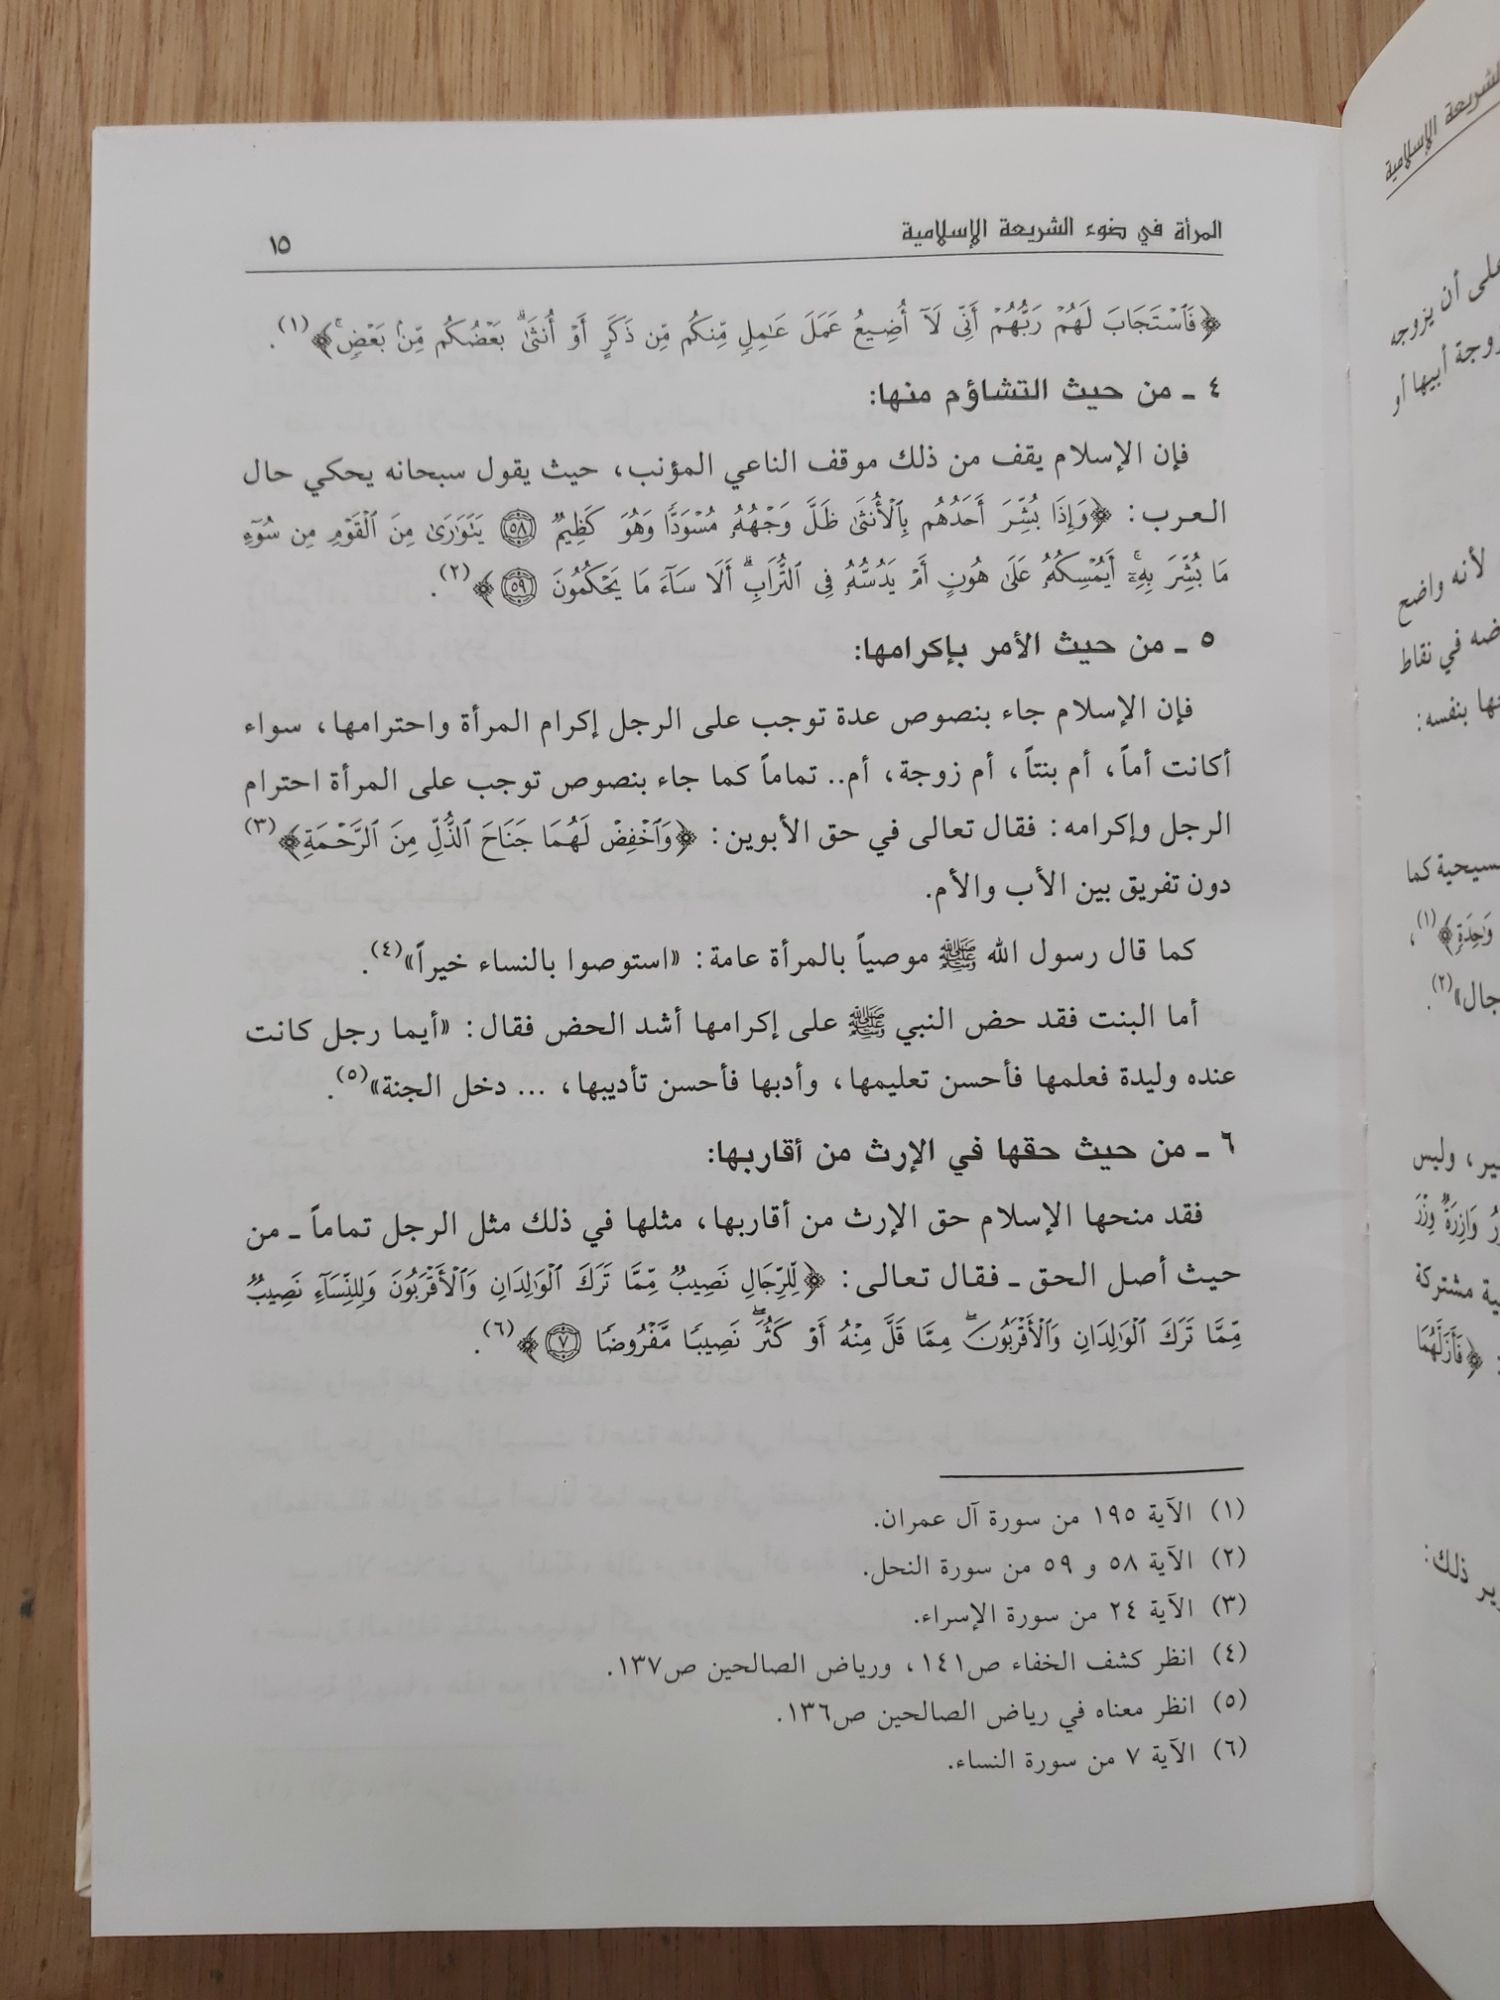 المرأة في ضوء الشريعة الإسلامية ١٥
﴿فَٱسْتَجَابَ لَهُمْ رَبُّهُمْ أَنِّى لَآ أُضِيعُ عَمَلَ عَٰمِلٍ مِّنكُم مِّن ذَكَرٍ أَوْ أُنثَىٰ ۖ بَعْضُكُم مِّنۢ بَعْضٍ ۖ﴾(١).
٤ ـ من حيث التشاؤم منها:
فإن الإسلام يقف من ذلك موقف الناعي المؤنب، حيث يقول سبحانه يحكي حال
العرب: ﴿وَإِذَا بُشِّرَ أَحَدُهُم بِٱلْأُنثَىٰ ظَلَّ وَجْهُهُۥ مُسْوَدًّا وَهُوَ كَظِيمٌ ٥٨ يَتَوَٰرَىٰ مِنَ ٱلْقَوْمِ مِن سُوٓءِ
مَا بُشِّرَ بِهِۦٓ ۚ أَيُمْسِكُهُۥ عَلَىٰ هُونٍ أَمْ يَدُسُّهُۥ فِى ٱلتُّرَابِ ۗ أَلَا سَآءَ مَا يَحْكُمُونَ ٥٩﴾(٢).
٥ ـ من حيث الأمر بإكرامها:
فإن الإسلام جاء بنصوص عدة توجب على الرجل إكرام المرأة واحترامها، سواء
أكانت أماً، أم بنتاً، أم زوجة، أم.. تماماً كما جاء بنصوص توجب على المرأة احترام
الرجل وإكرامه: فقال تعالى في حق الأبوين: ﴿وَٱخْفِضْ لَهُمَا جَنَاحَ ٱلذُّلِّ مِنَ ٱلرَّحْمَةِ﴾(٣)
دون تفريق بين الأب والأم.
كما قال رسول الله ﷺ موصياً بالمرأة عامة: «استوصوا بالنساء خيراً»(٤).
أما البنت فقد حض النبي ﷺ على إكرامها أشد الحض فقال: «أيما رجل كانت
عنده وليدة فعلمها فأحسن تعليمها، وأدبها فأحسن تأديبها، ... دخل الجنة»(٥).
٦ ـ من حيث حقها في الإرث من أقاربها:
فقد منحها الإسلام حق الإرث من أقاربها، مثلها في ذلك مثل الرجل تماماً ـ من
حيث أصل الحق ـ فقال تعالى: ﴿لِّلرِّجَالِ نَصِيبٌ مِّمَّا تَرَكَ ٱلْوَٰلِدَانِ وَٱلْأَقْرَبُونَ وَلِلنِّسَآءِ نَصِيبٌ
مِّمَّا تَرَكَ ٱلْوَٰلِدَانِ وَٱلْأَقْرَبُونَ مِمَّا قَلَّ مِنْهُ أَوْ كَثُرَ ۚ نَصِيبًا مَّفْرُوضًا ٧﴾(٦).
(١) الآية ١٩٥ من سورة آل عمران.
(٢) الآية ٥٨ و ٥٩ من سورة النحل.
(٣) الآية ٢٤ من سورة الإسراء.
(٤) انظر كشف الخفاء ص١٤١، ورياض الصالحين ص١٣٧.
(٥) انظر معناه في رياض الصالحين ص١٣٦.
(٦) الآية ٧ من سورة النساء.
الشريعة الإسلامية
على أن يزوجه
زوجة أبيها أو
لأنه واضح
في نقاط
بنفسه:
كما
وَٰحِدَةٍ﴾(١)،
(٢).
، وليس
وَازِرَةٌ وِزْرَ
مشتركة
﴿فَأَزَلَّهُمَا
ذلك: